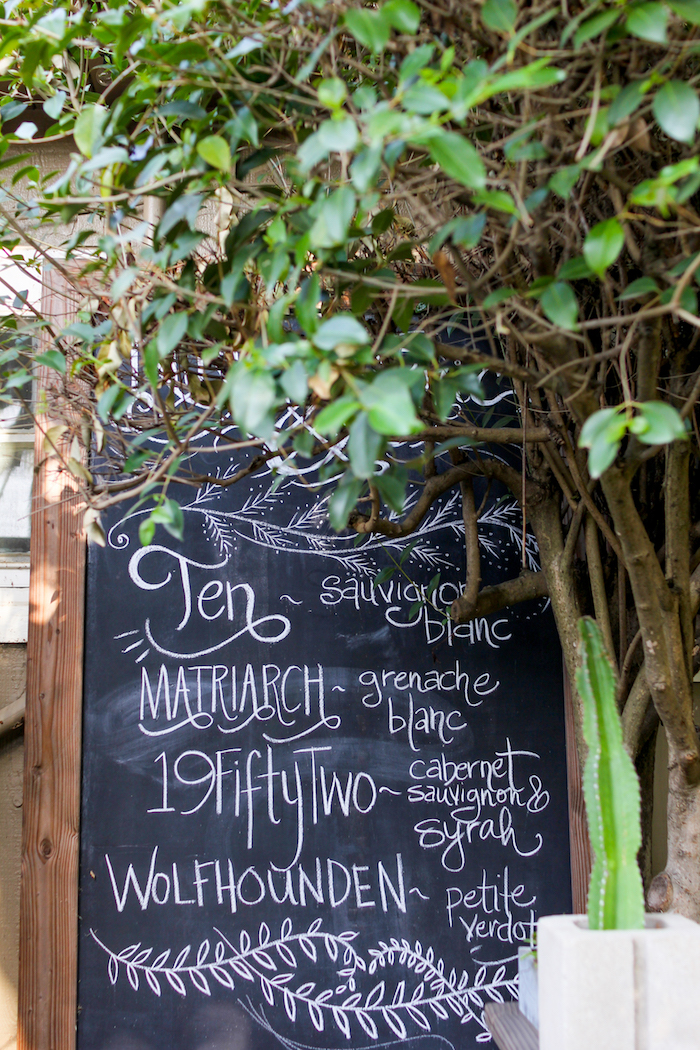 Ten ~ sauvignon
blanc
MATRIARCH ~ grenache
blanc
19FiftyTwo ~ cabernet
sauvignon &
syrah
WOLFHOUNDEN ~ petite
verdot